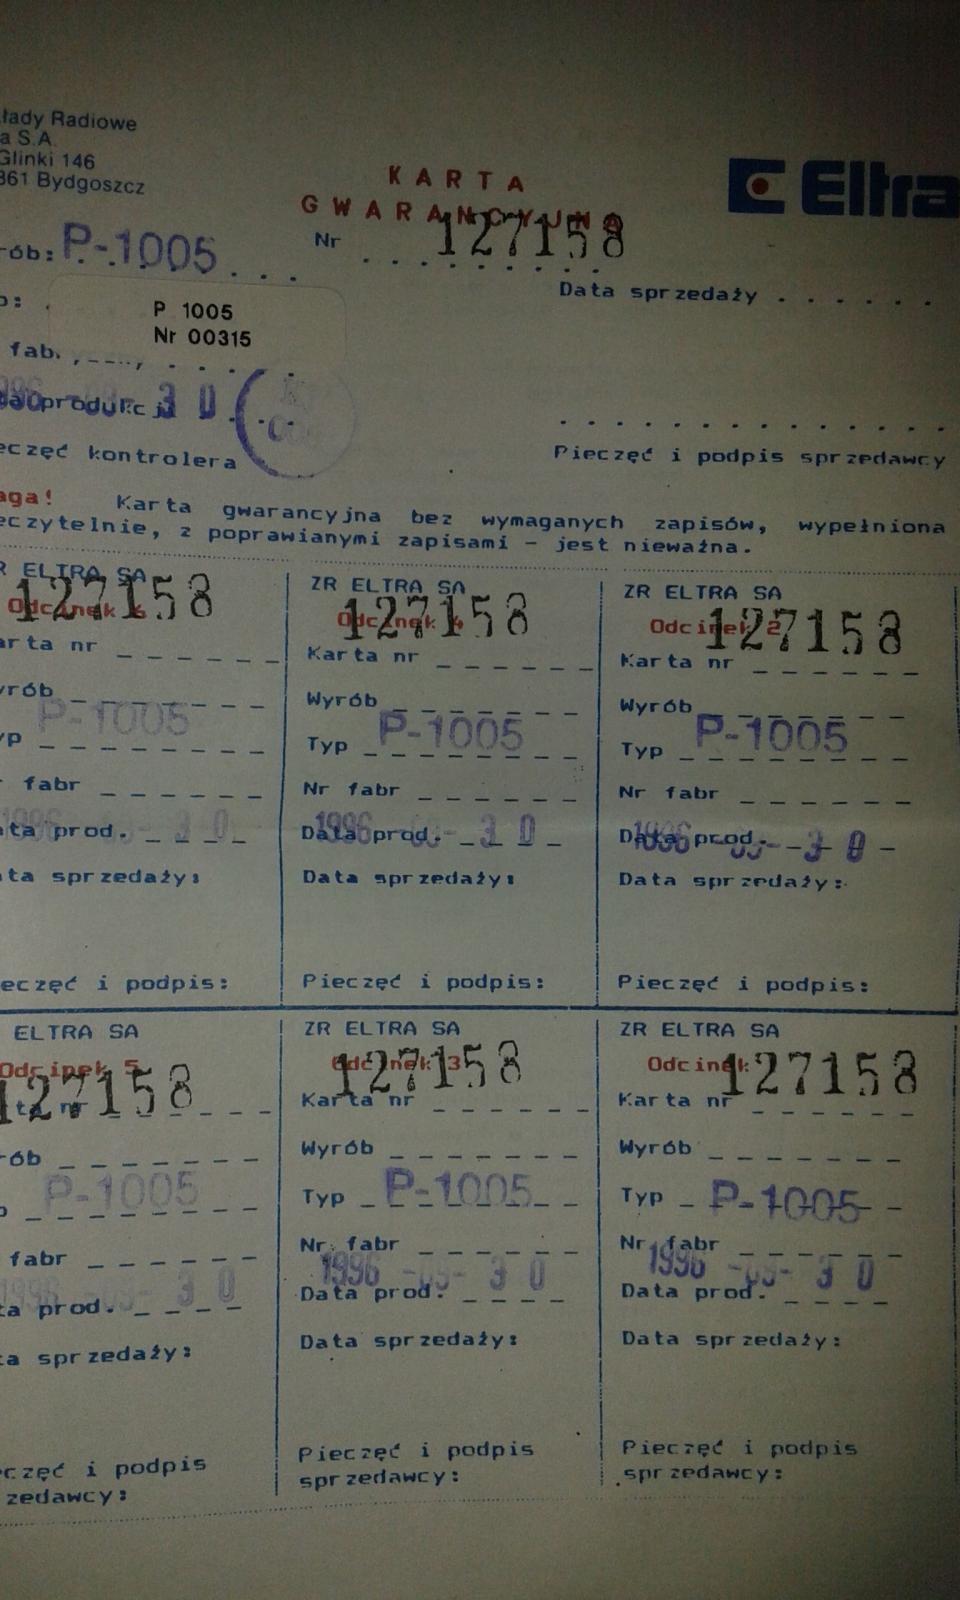 łady Radiowe
a S.A.
Glinki 146
361 Bydgoszcz
KARTA
GWARANCYJNA
Eltra
rób: P-1005
Nr 127158
Data sprzedaży
P 1005
Nr 00315
fab.
produkcji 1996 -03- 30
eczęć kontrolera
Pieczęć i podpis sprzedawcy
aga! Karta gwarancyjna bez wymaganych zapisów, wypełniona
eczytelnie, z poprawianymi zapisami - jest nieważna.
R ELTRA SA
Odcinek 6
127158
arta nr
yrób
P-1005
yp
r fabr
ata prod. 1996 -03- 30
ata sprzedaży:
eczęć i podpis:
ZR ELTRA SA
Odcinek 4
127158
Karta nr
Wyrób
P-1005
Typ
Nr fabr
Data prod. 1996 -03- 30
Data sprzedaży:
Pieczęć i podpis:
ZR ELTRA SA
Odcinek 2
127158
Karta nr
Wyrób
P-1005
Typ
Nr fabr
Data prod. 1996 -03- 30
Data sprzedaży:
Pieczęć i podpis:
ELTRA SA
Odcinek 5
127158
ta nr
rób
P-1005
fabr
1996 -03- 30
ta prod.
ta sprzedaży:
częć i podpis
zedawcy:
ZR ELTRA SA
Odcinek 3
127158
Karta nr
Wyrób
Typ P-1005
Nr fabr
1996 -03- 30
Data prod.
Data sprzedaży:
Pieczęć i podpis
sprzedawcy:
ZR ELTRA SA
Odcinek
127158
Karta nr
Wyrób
Typ P-1005
Nr fabr
1996 -03- 30
Data prod.
Data sprzedaży:
Pieczęć i podpis
sprzedawcy: